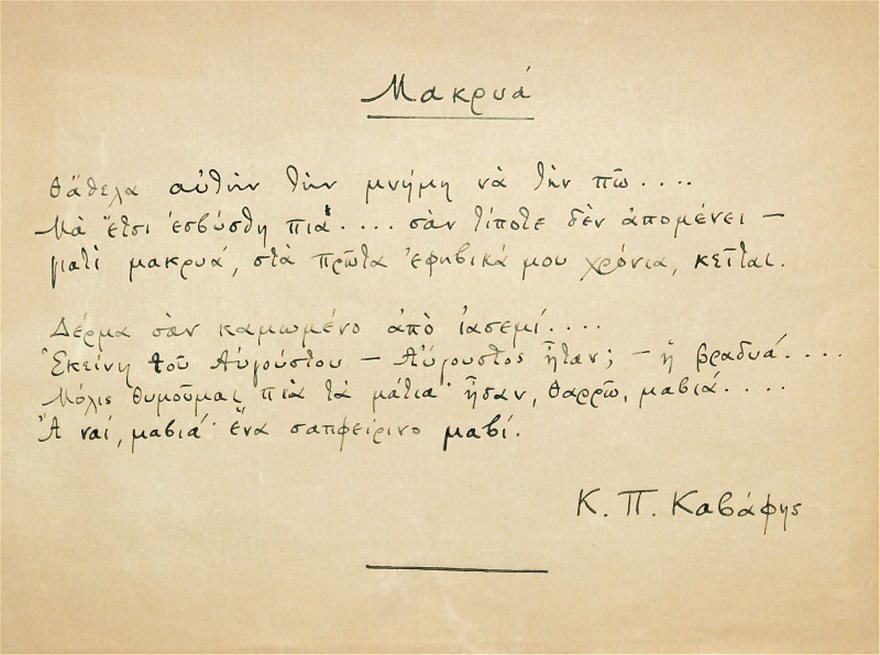 Μακρυά
Θἄθελα αὐτὴν τὴν μνήμη νὰ τὴν πῶ....
Μὰ ἔτσι ἐσβύσθη πιὰ.... σὰν τίποτε δὲν ἀπομένει —
γιατὶ μακρυά, στὰ πρῶτα ἐφηβικά μου χρόνια, κεῖται.
Δέρμα σὰν καμωμένο ἀπὸ ἰασεμί....
Ἐκείνη τοῦ Αὐγούστου — Αὔγουστος ἦταν; — ἡ βραδυά....
Μόλις θυμοῦμαι πιὰ τὰ μάτια· ἦσαν, θαρρῶ, μαβιά....
Ἆ ναί, μαβιά· ἕνα σαπφείρινο μαβί.
Κ. Π. Καβάφης